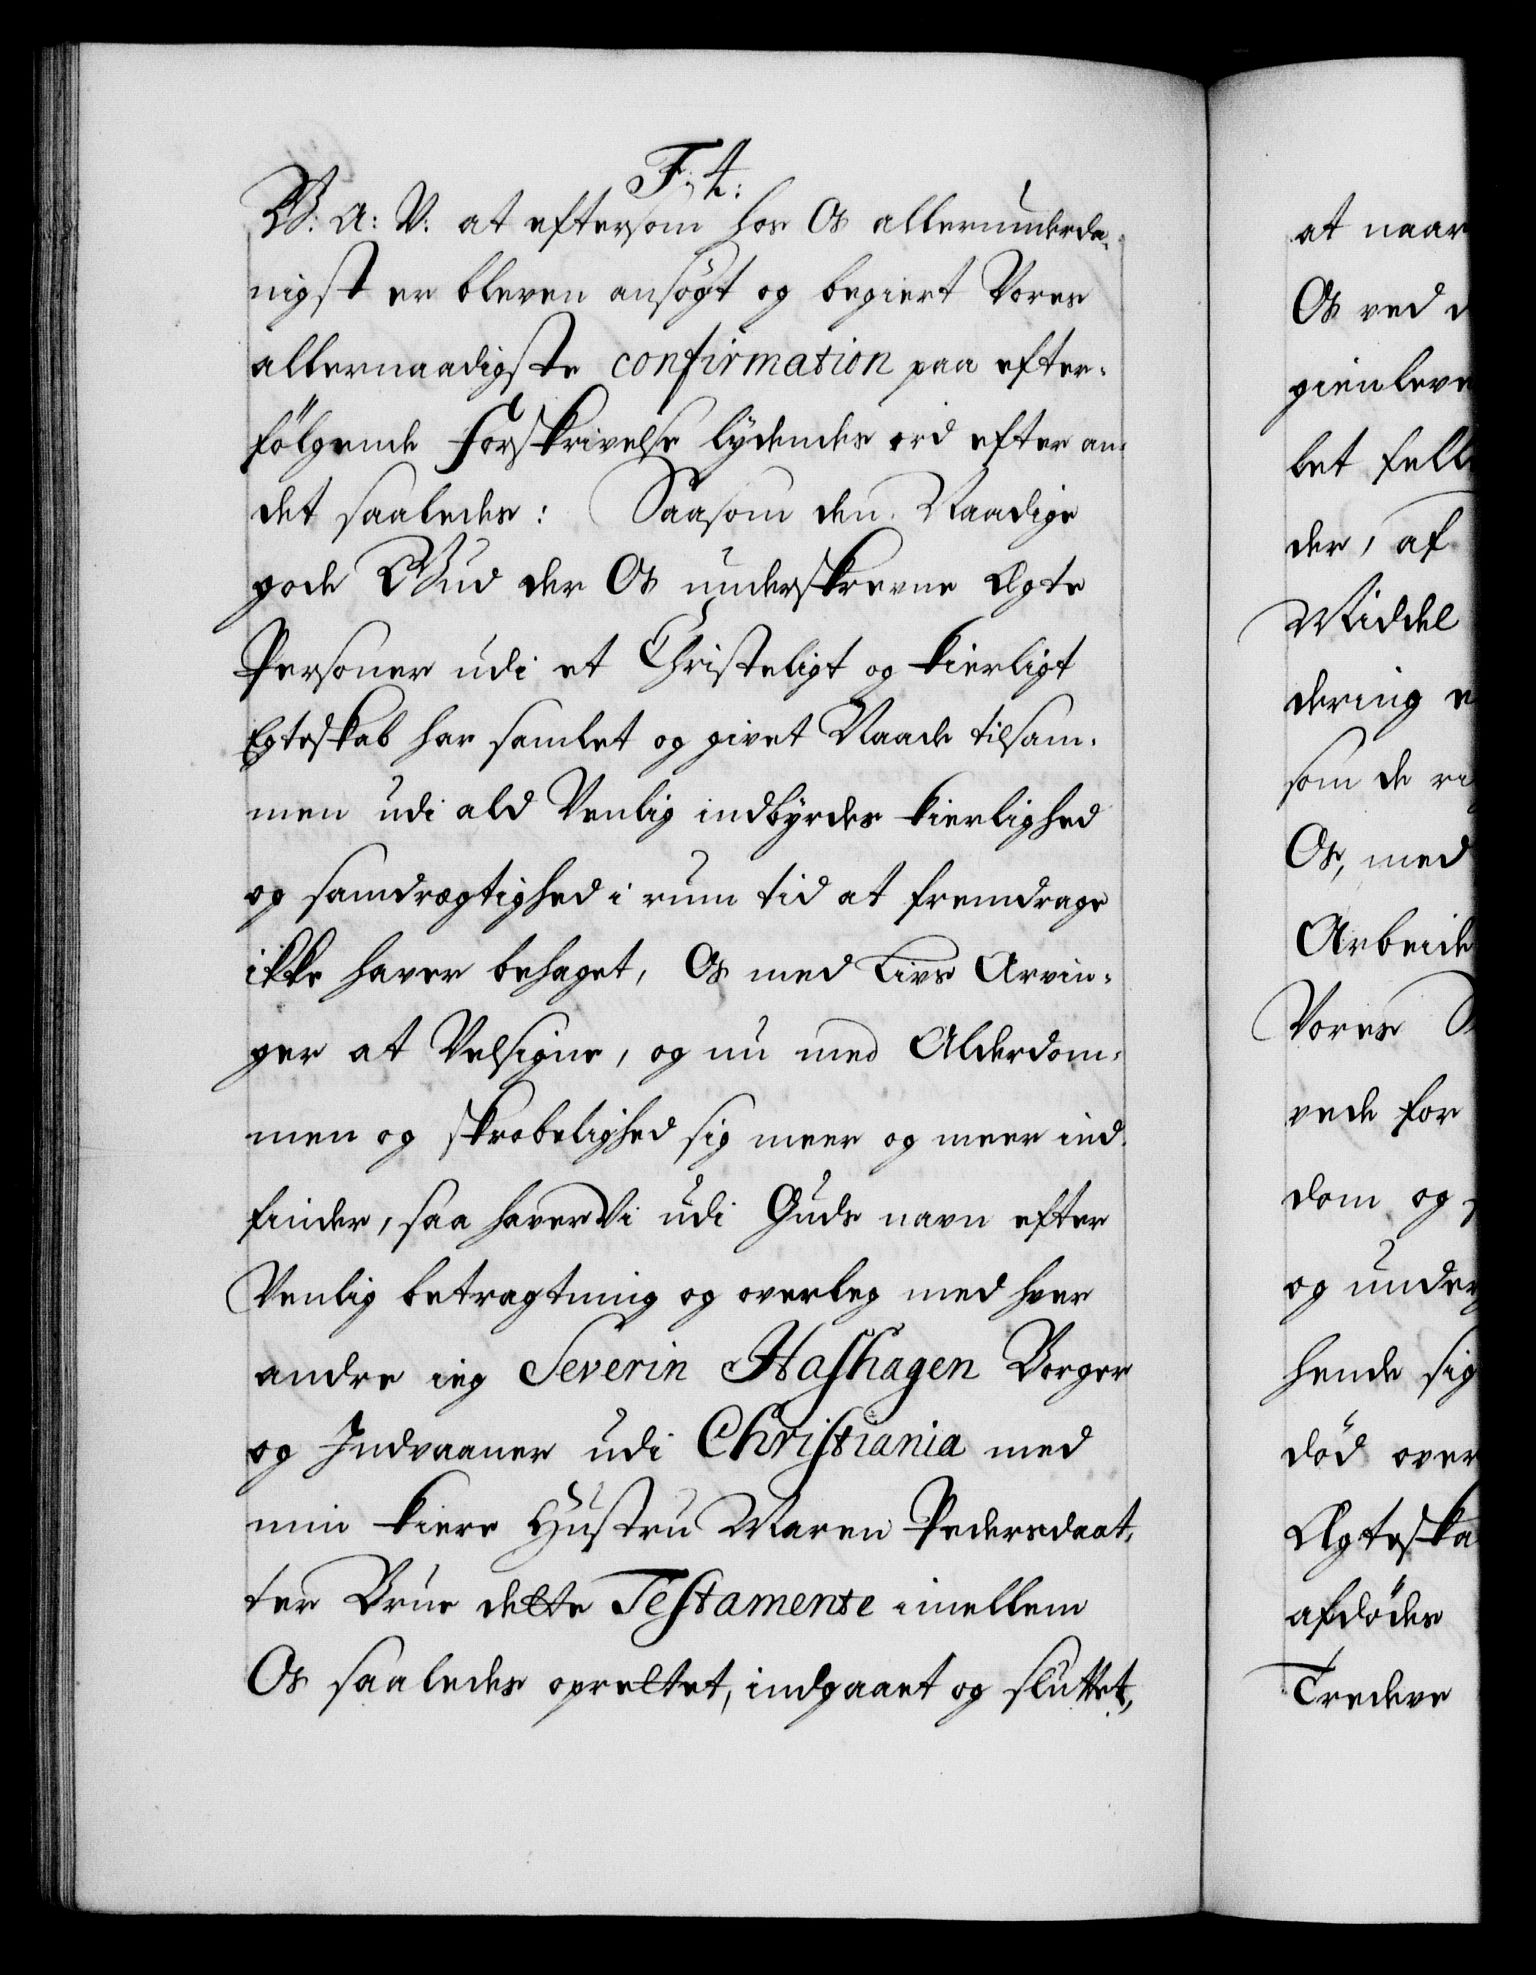 F: 4:
G: A: V: at eftersom hos Os allerunderda-
nigst er bleven ansögt og begiert Vores
allernaadigste confirmation paa efter-
fölgende forskrivelse lydendes ord efter an-
det saaledes: Saasom den Naadige
gode Gud der Os underskrevne Ægte
Personer udi et Christeligt og kierligt
Egteskab har samlet og givet Naade tilsam-
men udi ald Venlig indbyrdes kierlighed
og samdrægtighed i rum tid at fremdrage
ikke haver behaget, Os med Livs Arvin-
ger at Velsigne, og nu med Alderdom-
men og skrobelighed sig meer og meer ind-
finder, saa haver Vi udi Guds navn efter
Venlig betragtning og overleg med hver
andre ieg Severin Hashagen Borger
og Indvaaner udi Christiania med
min kiere Hustru Maren Pedersdaat-
ter Brun dette Testamente imellem
Os saaledes oprettet, indgaaet og sluttet,
at naar
Os ved
gienleve
bet fell
der, af
Middel
dering
som de
Os, med
Arbeide
Vores
vede for
dom og
og under
hende sig
död over
Ægteska
afdödes
Tredeve